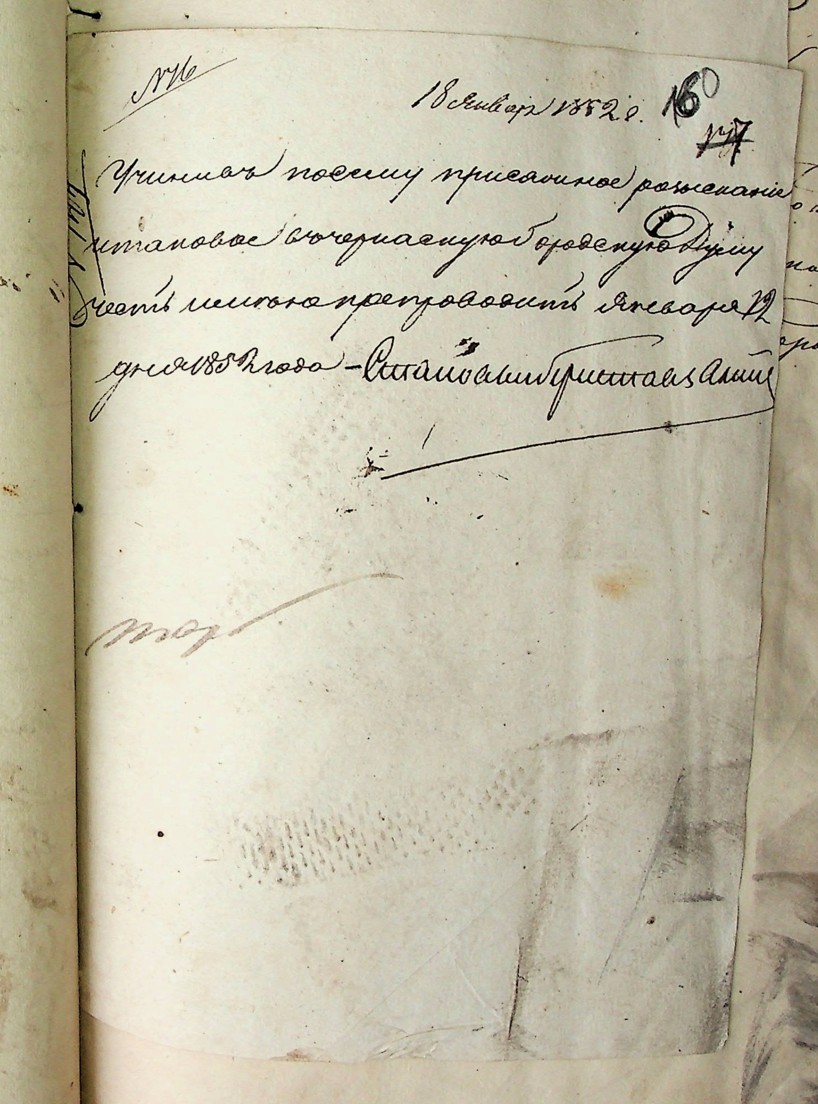 N 16
18 Январ 1852 г.
160
Учинивъ по сему присяжное розыскание
и таковое въ черкаскую городскую Думу
честь имею препроводить Января 12
дня 1852 года – Становый Приставъ